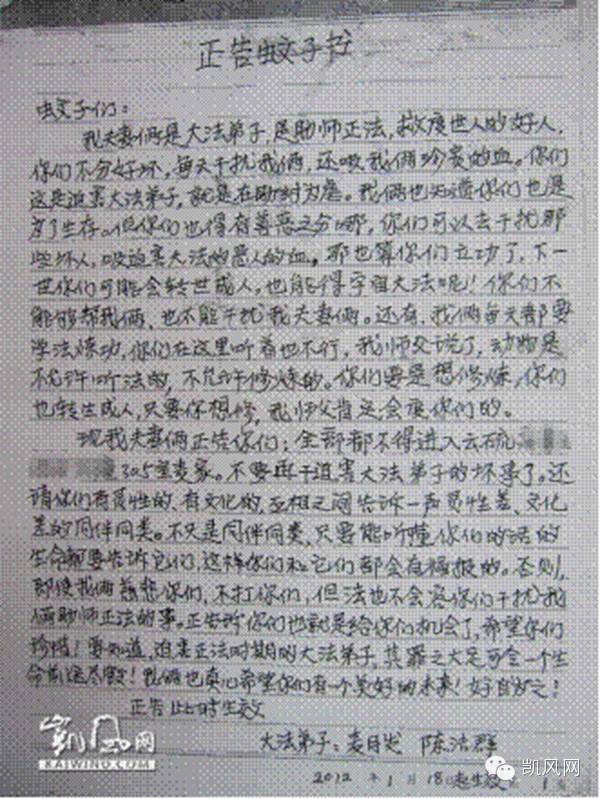 正告蚊子书
蚊子们：
我夫妻俩是大法弟子，是助师正法，救度世人的好人，
你们不分好坏，每天干扰我俩，还吸我俩珍贵的血。你们
这是迫害大法弟子，就是在助纣为虐。我俩也知道你们也是
为了生存。但你们也得有善恶之分哪，你们可以去干扰那
些坏人，吸迫害大法的恶人的血。那也算你们立功了，下一
世你们可能会转世成人，也能得宇宙大法呢！你们不
能够帮我俩，也不能干扰我夫妻俩。还有，我俩每天都要
学法炼功，你们在这里听着也不行，我师父说了，动物是
不允许听法的，不允许修炼的。你们要是想修炼，你们
也转生成人，只要你想修，我师父肯定会度你们的。
现我夫妻俩正告你们：全部都不得进入云硫
305室麦家。不要再干迫害大法弟子的坏事了。还
请你们有灵性的、有文化的，互相之间告诉一声灵性差、文化
差的同伴同类。不只是同伴同类，只要能听懂你们的话的
生命都要告诉它们，这样你们和它们都会有福报的。否则，
即使我俩慈悲你们，不打你们，但法也不会容你们干扰我
俩助师正法的事。正告诉你们也就是给你们机会了，希望你们
珍惜！要知道，迫害正法时期的大法弟子，其罪之大足可令一个生
命前途尽毁！我俩也真心希望你们有一个美好的未来！好自为之！
正告此时生效
大法弟子：麦月发 陈洁群
2012年1月18起生效
凯风网
KAIWIND.COM
凯风网